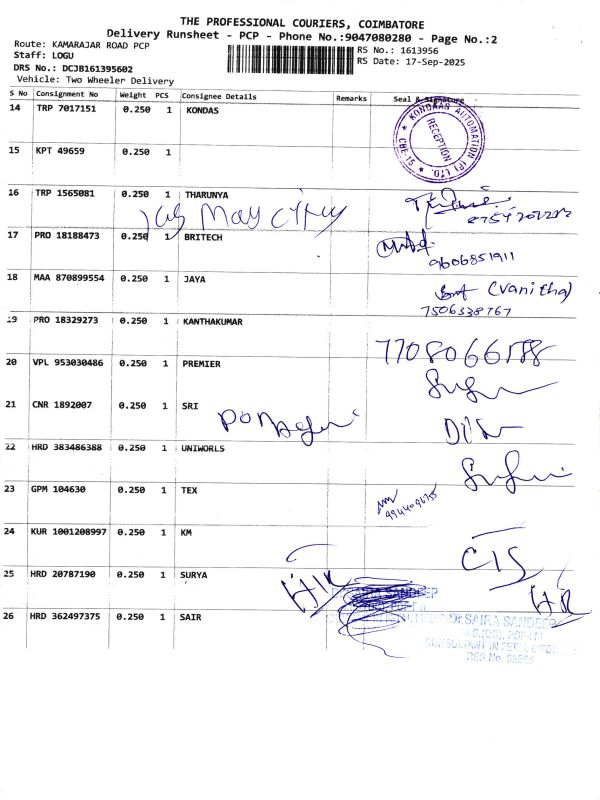 THE PROFESSIONAL COURIERS, COIMBATORE
Delivery Runsheet - PCP - Phone No.:9047080280 - Page No.:2
Route: KAMARAJAR ROAD PCP
Staff: LOGU
DRS No.: DCJB161395602
Vehicle: Two Wheeler Delivery
RS No.: 1613956
RS Date: 17-Sep-2025
S No Consignment No Weight PCS Consignee Details Remarks Seal & Signature
14 TRP 7017151 0.250 1 KONDAS
KONDAAS AUTOMATION (P) LTD. * CBE-15 *
RECEPTION
15 KPT 49659 0.250 1
16 TRP 1565081 0.250 1 THARUNYA
17 PRO 18188473 0.250 1 BRITECH
9606851911
18 MAA 870899554 0.250 1 JAYA
(Vanitha)
7506338767
19 PRO 18329273 0.250 1 KANTHAKUMAR
20 VPL 953030486 0.250 1 PREMIER
21 CNR 1892007 0.250 1 SRI
22 HRD 383486388 0.250 1 UNIWORLS
23 GPM 104630 0.250 1 TEX
24 KUR 1001208997 0.250 1 KM
CTS
25 HRD 20787190 0.250 1 SURYA
26 HRD 362497375 0.250 1 SAIR
Dr.SAIRA SANDEEP
CONSULTANT IN FETAL